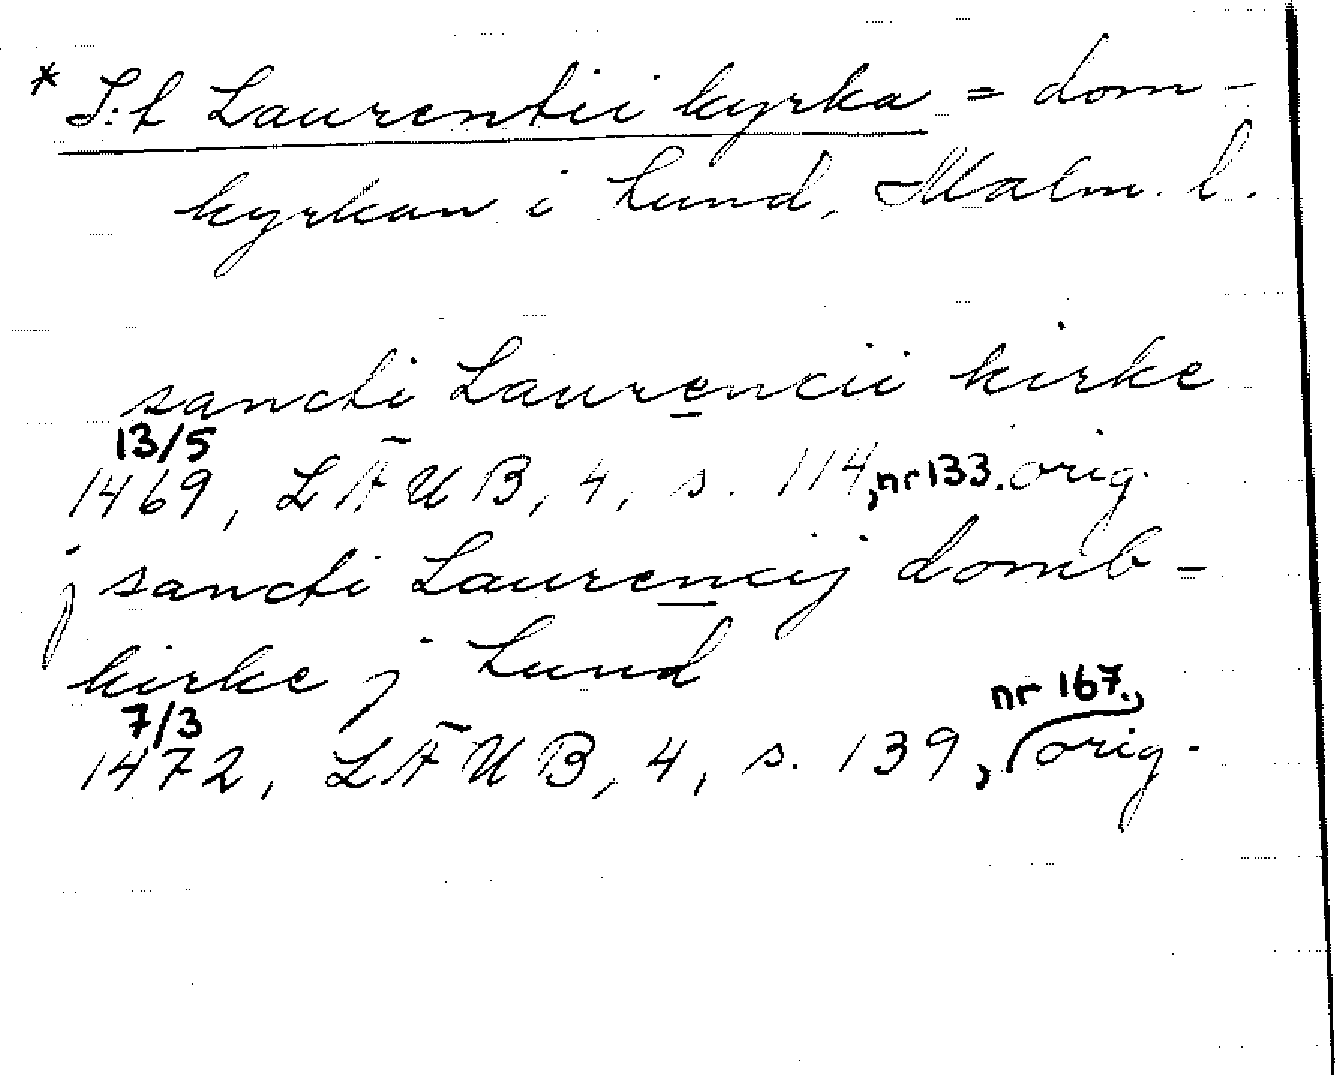 * S:t Laurentii kyrka = dom-
kyrkan i Lund, Malm. l.
sancti Laurencii kirke
13/5
1469, LÄUB, 4, s. 114, nr 133. orig.
j sancti Laurencij domb-
kirke j Lund
nr 167.,
7/3
1472, LÄUB, 4, s. 139, orig.